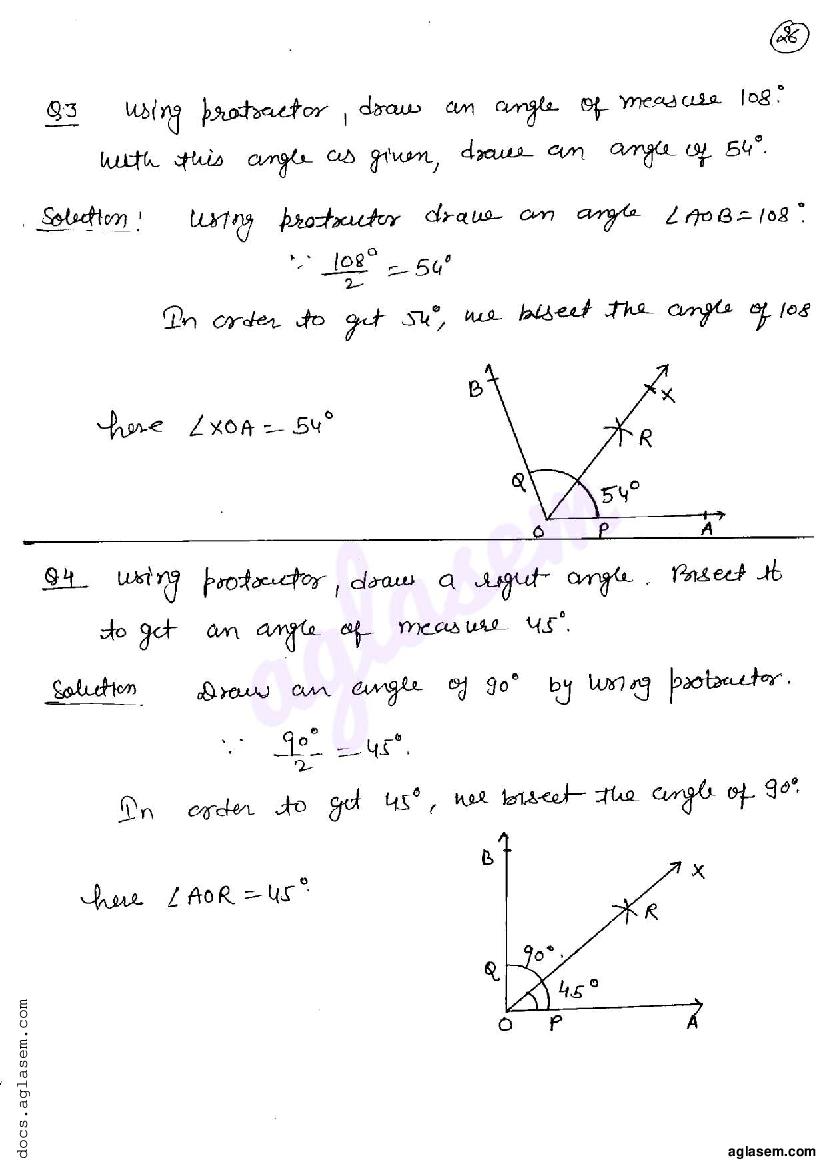 26
Q.3 Using protractor, draw an angle of measure 108°.
With this angle as given, draw an angle of 54°.
Solution: Using protractor draw an angle ∠AOB = 108°.
∵ 108°/2 = 54°
In order to get 54°, we bisect the angle of 108
here ∠XOA = 54°
B
X
R
Q
54°
O P A
Q4 Using protractor, draw a right angle. Bisect it
to get an angle of measure 45°.
Solution Draw an angle of 90° by using protractor.
∵ 90°/2 = 45°.
In order to get 45°, we bisect the angle of 90°.
here ∠AOR = 45°.
B
X
R
90°.
Q
45°
O P A
aglasem
docs.aglasem.com
aglasem.com